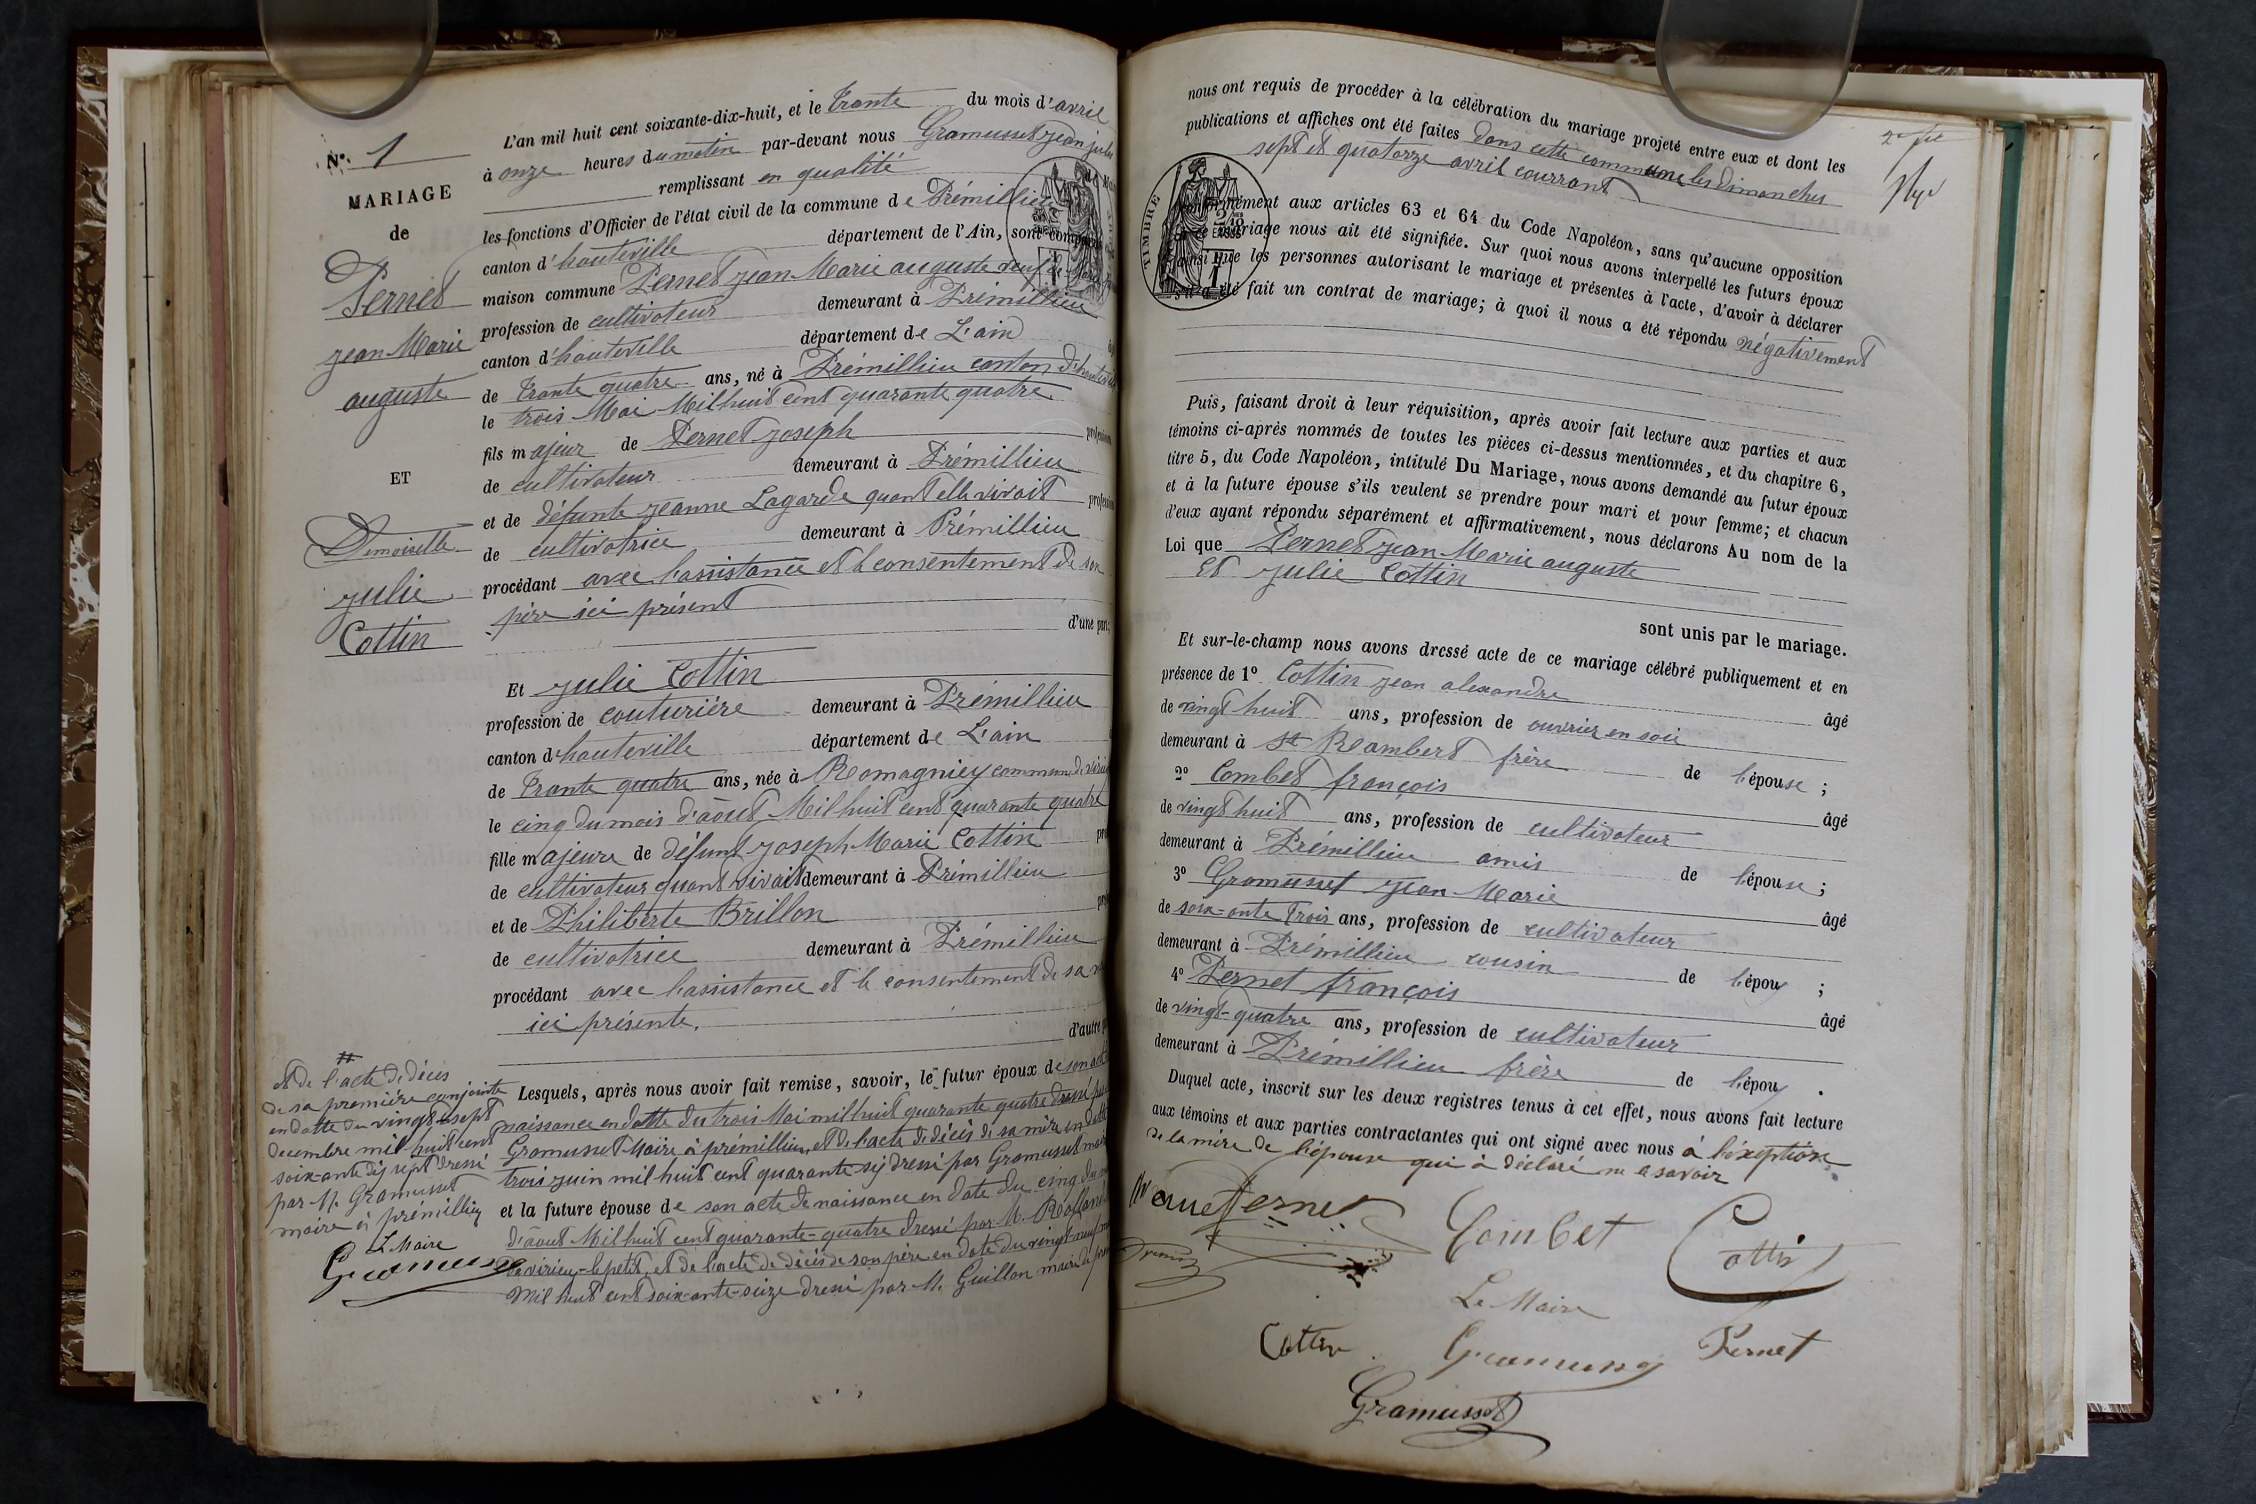 N° 1
MARIAGE
de
Pernet
jean Marie
auguste
ET
Demoiselle
julie
Cottin
L'an mil huit cent soixante-dix-huit, et le trante du mois d'avril
à onze heures du matin par-devant nous Gramusset jean
remplissant en qualité
les fonctions d'Officier de l'état civil de la commune de Prémillieu
canton d'hauteville département de l'Ain, sont
maison commune Pernet jean Marie auguste veuf de
profession de cultivateur demeurant à Prémillieu
canton d'hauteville département de L'ain
de trante quatre ans, né à Prémillieu canton d'
le trois Mai Mil huit cent quarante quatre
fils majeur de Pernet joseph profession
de cultivateur demeurant à Prémillieu
et de défunte jeanne Lagarde quant elle vivait profession
de cultivatrice demeurant à Prémillieu
procédant avec l'assistance et le consentement de son
père ici présent
d'une part;
Et julie Cottin
profession de couturière demeurant à Prémillieu
canton d'hauteville département de L'ain
de trante quatre ans, née à Romagnieu commune de
le cinq du mois d'août Mil huit cent quarante quatre
fille majeure de défunt joseph Marie Cottin
de cultivateur quant vivait demeurant à Prémillieu
et de Philiberte Brillon
de cultivatrice demeurant à Prémillieu
procédant avec l'assistance et le consentement de sa
ici présente.
d'autre
Lesquels, après nous avoir fait remise, savoir, le futur époux de son acte
naissance en datte du trois Mai mil huit quarante quatre dressé par
Gramusset Maire à prémillieu, et de l'acte de décès de sa mère en datte
trois juin mil huit cent quarante-sis dressé par Gramusset maire
et la future épouse de son acte de naissance en date du cinq du
d'août Mil huit cent quarante=quatre dressé par M. Rolland
de virieu-le petit, et de l'acte de décès de son père en date du vingt neuf
Mil huit cent soix-ante-seize dressé par M. Guillon maire de
#
et de l'acte de décès
de sa première conjointe
en datte du vingt sept
decembre mil huit cent
soix-ante dis sept dressé
par M. Gramusset
maire à prémillieu
Le Maire
Gramusset
2e fle
nous ont requis de procéder à la célébration du mariage projeté entre eux et dont les
publications et affiches ont été faites dans cette commune les dimanches
sept et quatorze avril courrant
TIMBRE
aux articles 63 et 64 du Code Napoléon, sans qu'aucune opposition
mariage nous ait été signifiée. Sur quoi nous avons interpellé les futurs époux
ainsi que les personnes autorisant le mariage et présentes à l'acte, d'avoir à déclarer
s'il a été fait un contrat de mariage; à quoi il nous a été répondu négativement
Puis, faisant droit à leur réquisition, après avoir fait lecture aux parties et aux
témoins ci-après nommés de toutes les pièces ci-dessus mentionnées, et du chapitre 6,
titre 5, du Code Napoléon, intitulé Du Mariage, nous avons demandé au futur époux
et à la future épouse s'ils veulent se prendre pour mari et pour femme; et chacun
d'eux ayant répondu séparément et affirmativement, nous déclarons Au nom de la
Loi que Pernet jean Marie auguste
Et julie Cottin
sont unis par le mariage.
Et sur-le-champ nous avons dressé acte de ce mariage célébré publiquement et en
présence de 1° Cottin jean alexandre âgé
de vingt huit ans, profession de ouvrier en soie
demeurant à St Rambert frère de l'épouse ;
2° Combet françois âgé
de vingt huit ans, profession de cultivateur
demeurant à Prémillieu amis de l'épouse ;
3° Gramusset jean Marie âgé
de soix-ante trois ans, profession de cultivateur
demeurant à Prémillieu cousin de l'époux ;
4° Pernet françois âgé
de vingt-quatre ans, profession de cultivateur
demeurant à Prémillieu frère de l'époux .
Duquel acte, inscrit sur les deux registres tenus à cet effet, nous avons fait lecture
aux témoins et aux parties contractantes qui ont signé avec nous à l'éxeption
de la mère de l'épouse qui à déclaré ne le savoir
Pernet Combet Cottin
Le Maire
Cottin Gramusset Pernet
Gramusset